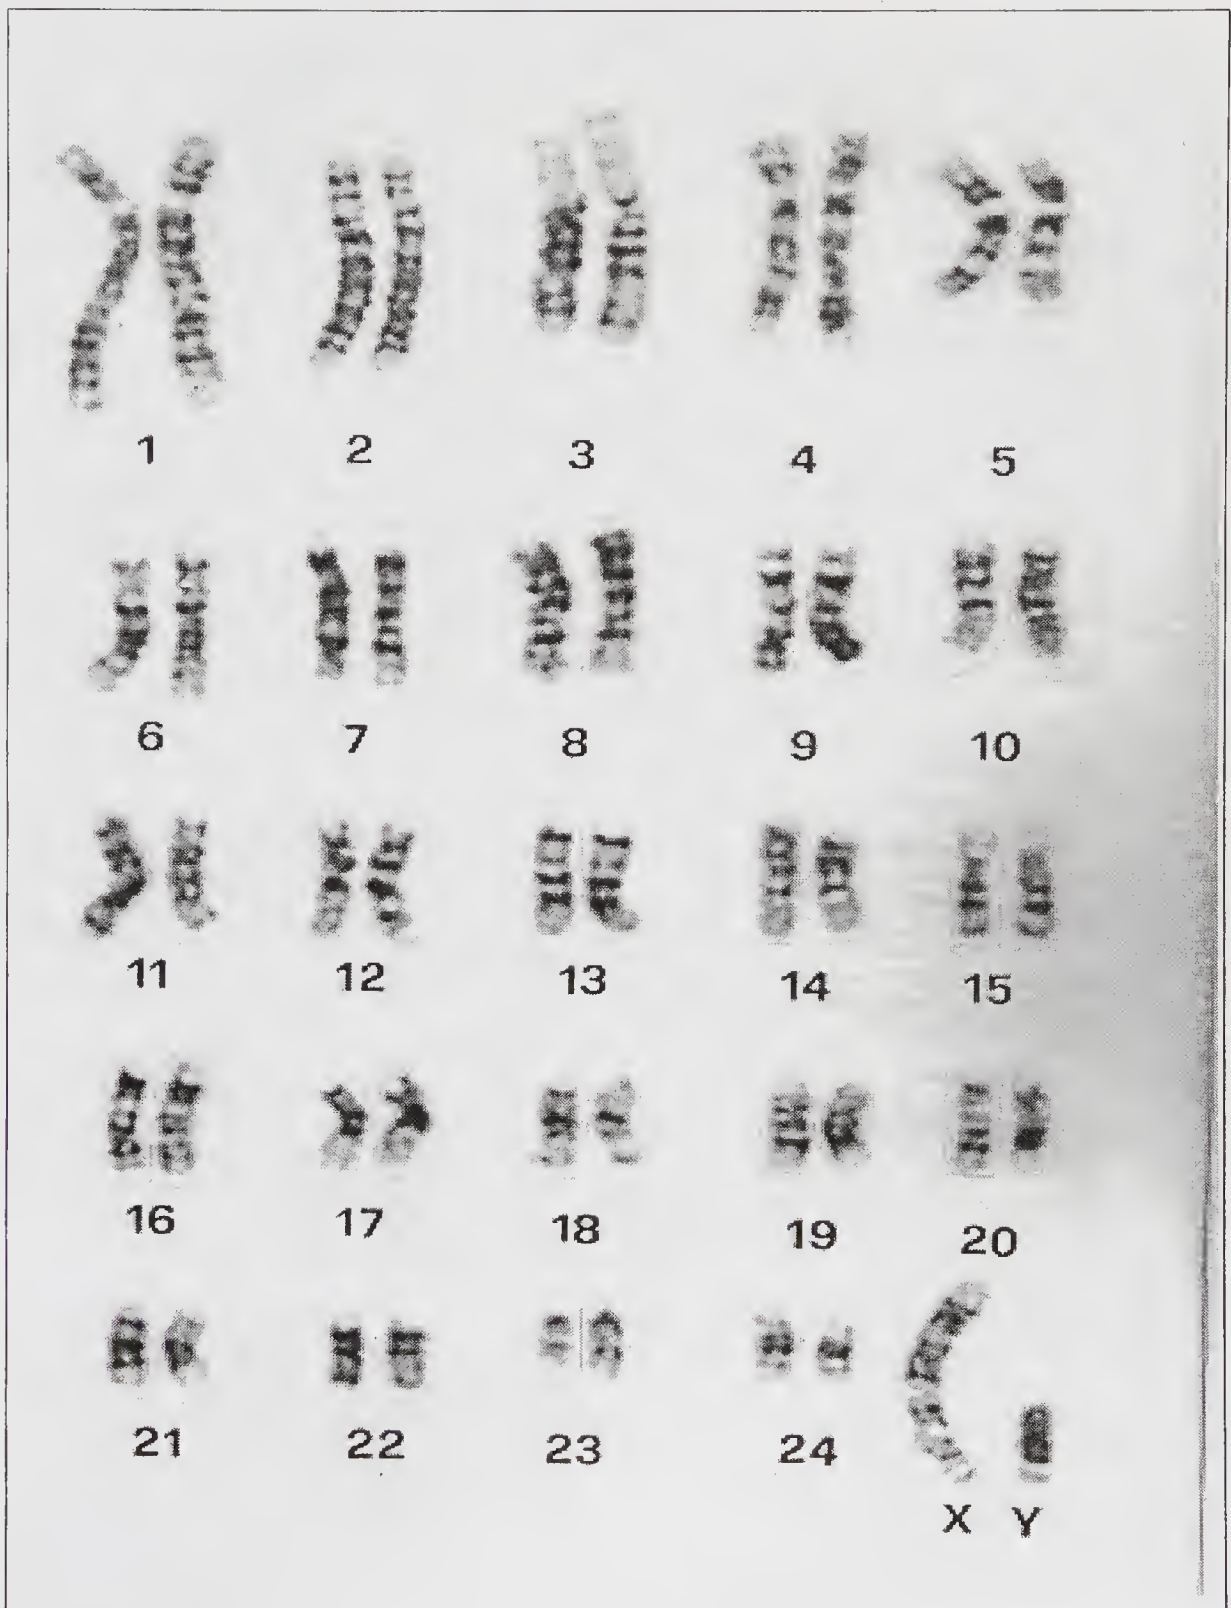 1 2 3 4 5
6 7 8 9 10
11 12 13 14 15
16 17 18 19 20
21 22 23 24
X Y